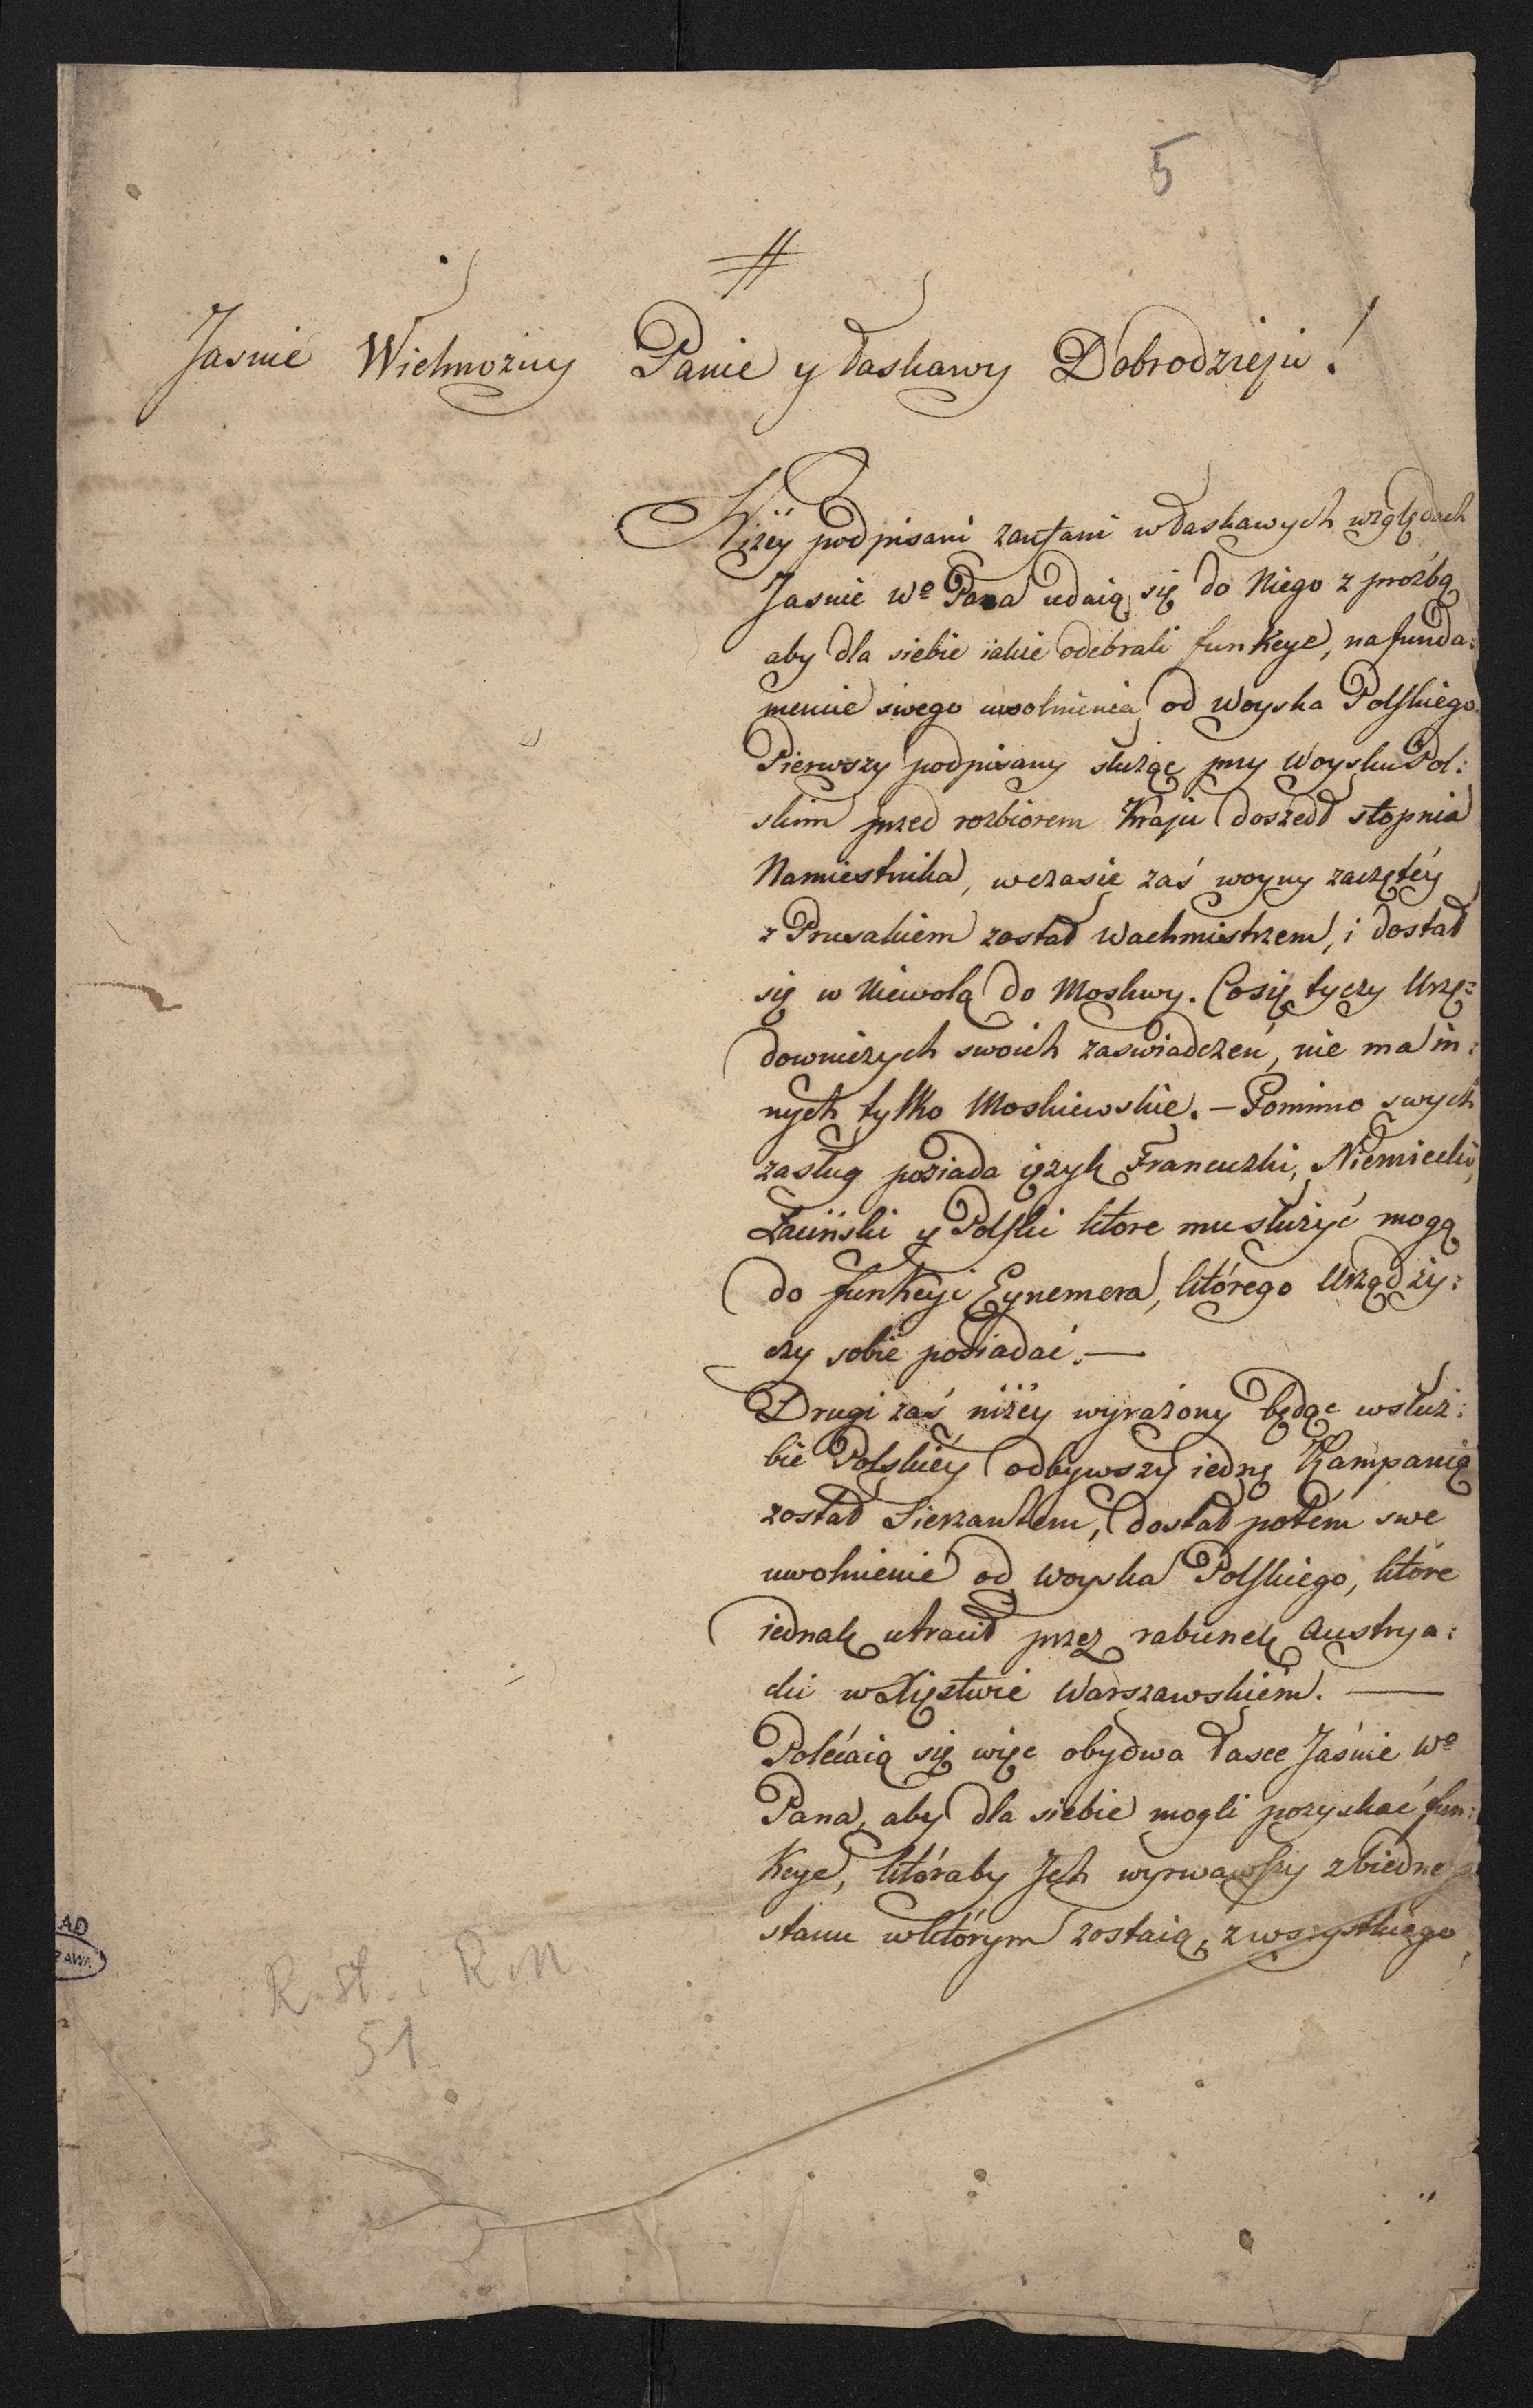 5
Jasnie Wielmożny Panie y Łaskawy Dobrodzieju!
Niżey podpisani zaufani w Łaskawych względach
Jasnie Wo Pana udaią się do Niego z proźbą
aby dla siebie iakie odebrali funkcye, na funda:
mencie swego uwolnienia od Woyska Polskiego.
Pierwszy podpisany służąc przy Woysku Pol:
skim przed rozbiorem Kraju doszedł stopnia
Namiestnika, w czasie zaś woyny zaczętéy
z Prusakiem został Wachmistrzem, i dostał
się w Niewolą do Moskwy. Co się tyczy Urzę:
downiczych swoich zaswiadczeń, nie ma in:
nych tylko Moskiewskie. — Pomimo swych
zasług posiada ięzyk Francuzki, Niemiecki,
Łaciński y Polski ktore mu służyć mogą
do funkcyi Eynemera, którego Urząd ży:
czy sobie posiadać. —
Drugi zaś niżéy wyrażony będąc w służ:
bie Polskiéy odbywszy iednę Kampanią
został Sierzantem, dostał potém swe
uwolnienie od Woyska Polskiego, które
iednak utracił przez rabunek Austrya:
cki w Xięstwie Warszawskiém. —
Polécaią się więc obydwa Łasce Jaśnie Wo
Pana, aby dla siebie mogli pozyskać fun:
kcye, któraby Jch wyrwawszy z biedne
stanu w którym zostaią, z wszystkiego
AD
R. st. i R. M.
51.